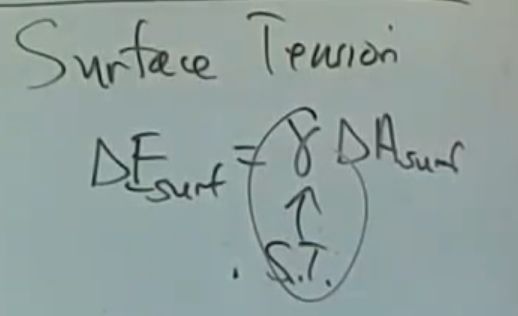 Surface Tension
ΔE_surf = γ ΔA_surf
↑
S.T.